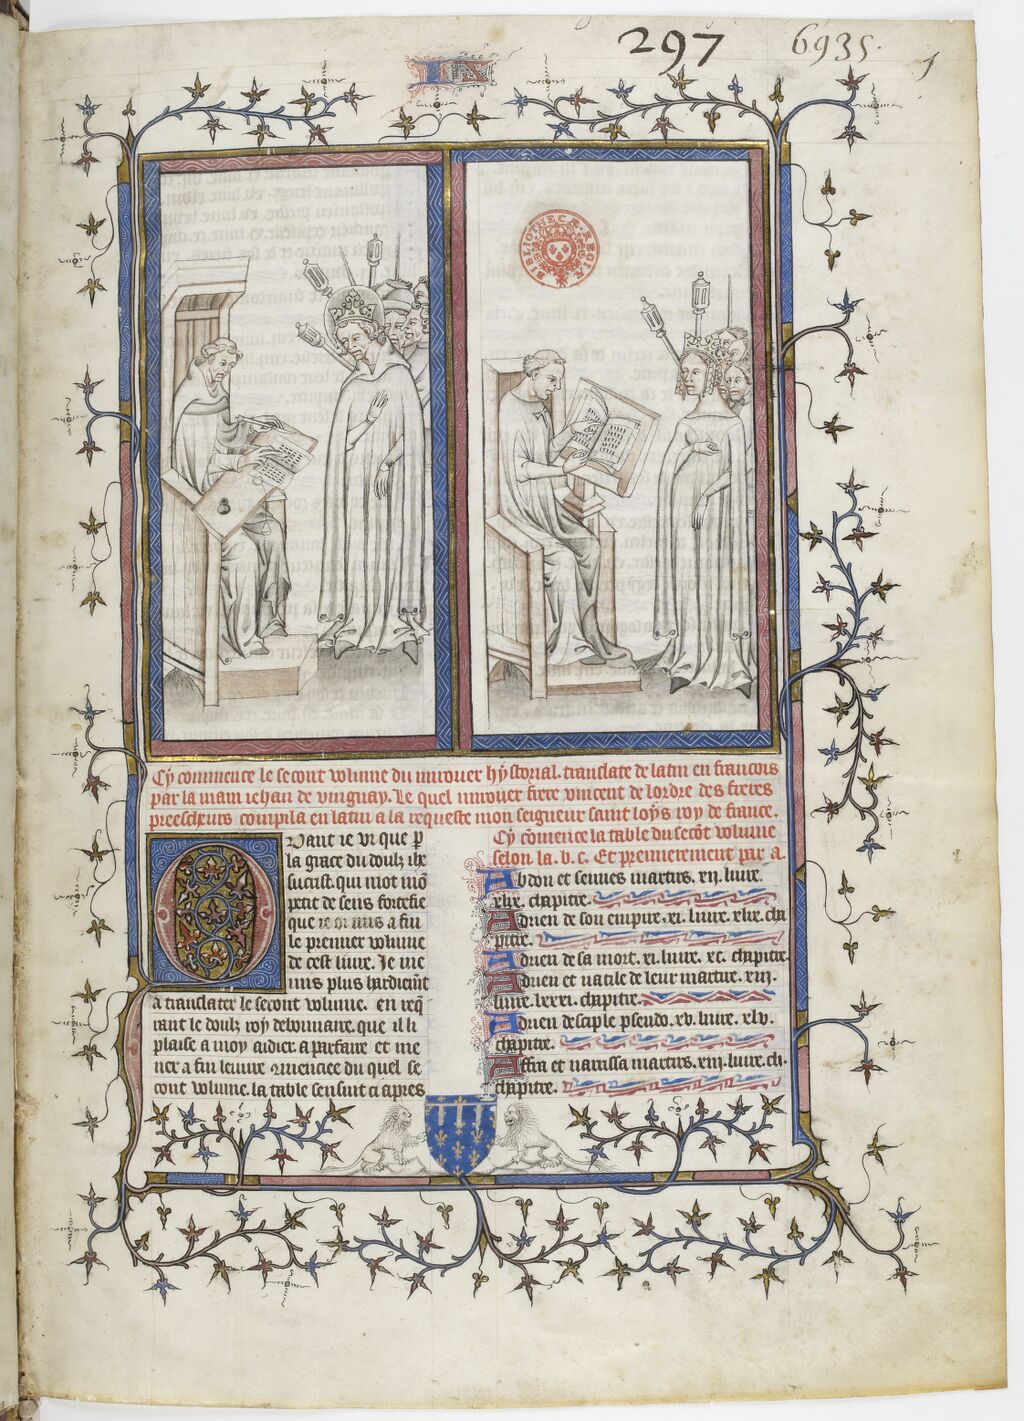 297
6935.
BIBLIOTHECÆ REGIÆ
Cy commence le second volume du mirouer hystorial. translate de latin en francois
par la main iehan de vingnay. Le quel mirouer frere vincent de lordre des freres
preescheurs compila en latin a la requeste mon seigneur saint loys roy de france.
Quant ie vi que p
la grace du doulz ihe
sucrist. qui mot mõ
petit de sens fortefie
que a fin
le premier volume
de cest liure. Je me
mis plus hardiemt
a translater le second volume. en req̃
rant le doulz roy debonnaire. que il li
plaise a moy aidier. a parfaire et me
ner a fin leuure encommencee du quel se
cont volume. la table sensuit ci apres
Cy cõmence la table du secõt volume
selon la. b. c. Et premierement par a.
Abdon et sennes martirs. xij. liure.
xlix. chapitre.
Adrien de son empire. xi. liure. xlix. cha
pitre.
Adrien de sa mort. xi. liure. xc. chapitre.
Adrien et natile de leur martire. xiij.
liure. lxxxi. chapitre.
Adrien desaple pseudo. xv. liure. xlv.
chapitre.
Affra et narcissa martirs. xiij. liure. ch.
chapitre.